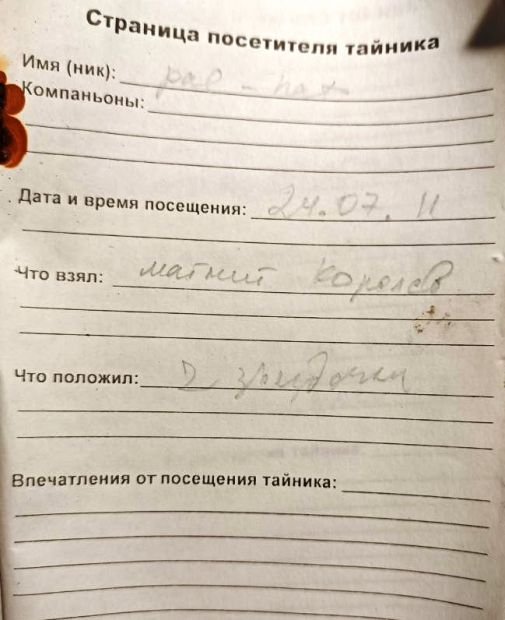 Страница посетителя тайника
Имя (ник):
Компаньоны:
Дата и время посещения: 24.07.11
Что взял: магнит Королёв
Что положил: 2 звёздочки
Впечатления от посещения тайника: